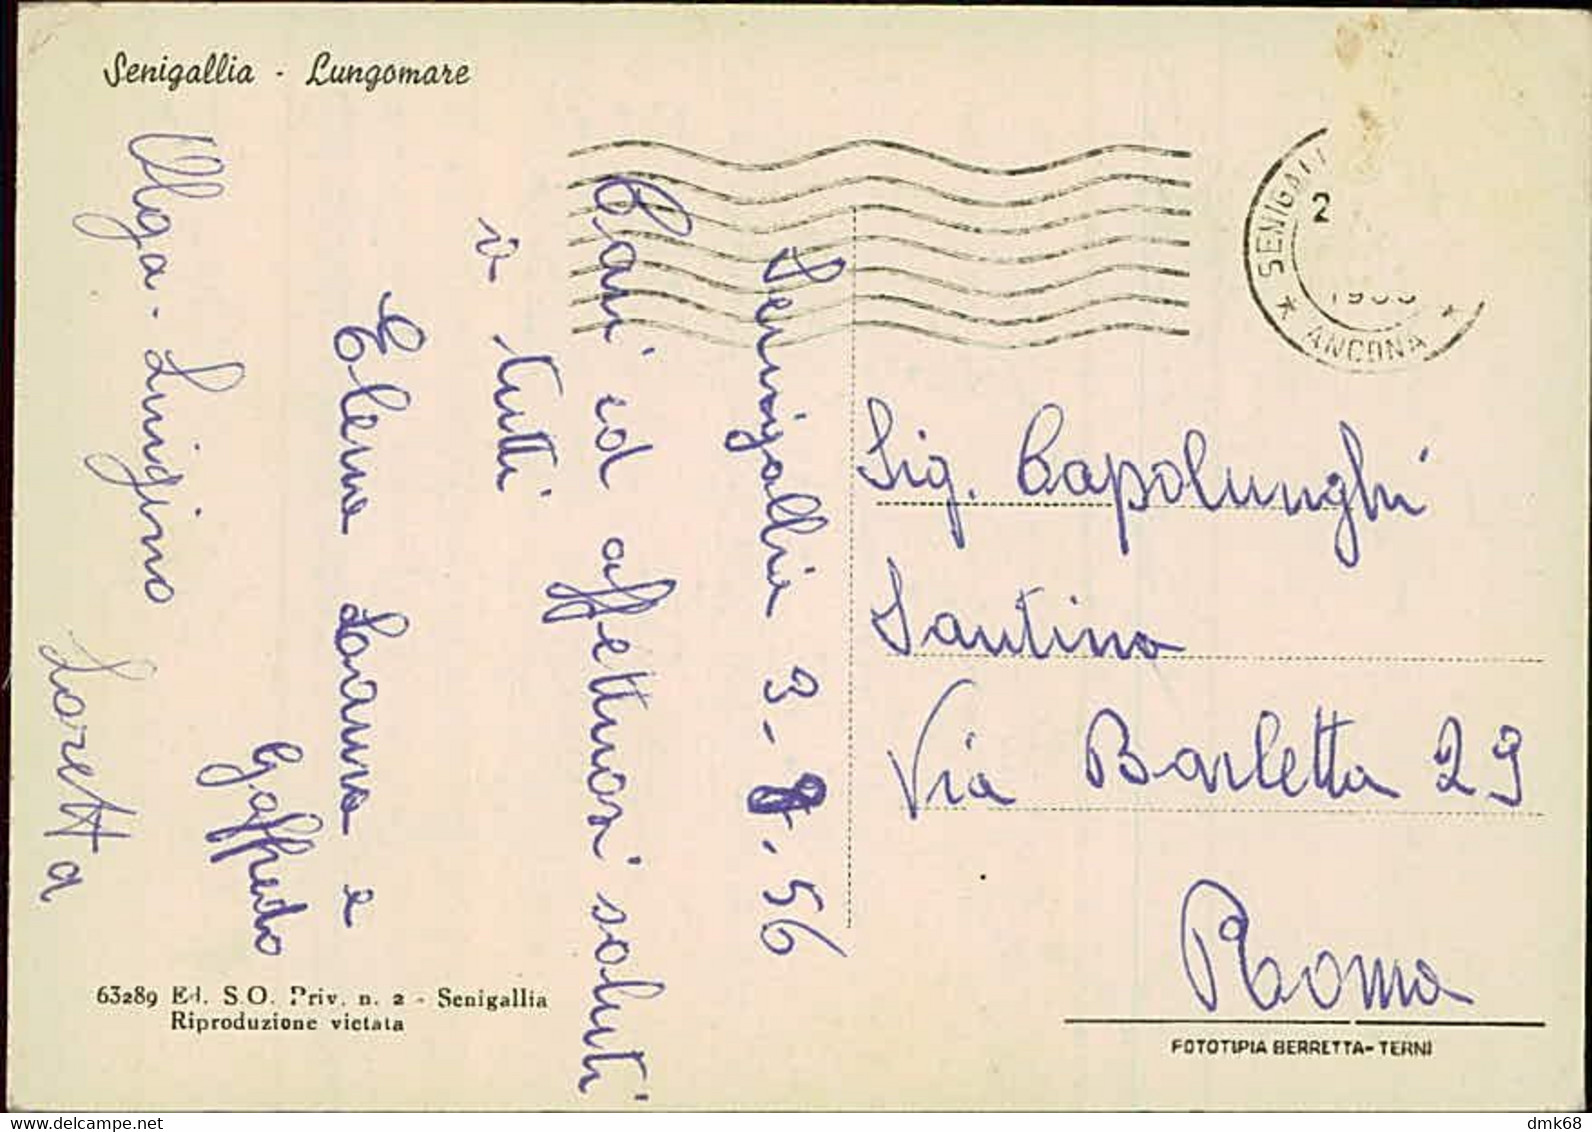 Senigallia - Lungomare
Senigallia 3-8-56
Cari ed affettuosi saluti
a tutti
Elena Laura e
Goffredo
Olga - Luigino
Loretta
SENIGALLIA
2
* ANCONA *
Sig. Capolunghi
Santino
Via Barletta 29
Roma
63289 Ed. S.O. Priv. n. 2 - Senigallia
Riproduzione vietata
FOTOTIPIA BERRETTA-TERNI
www.delcampe.net
dmk68